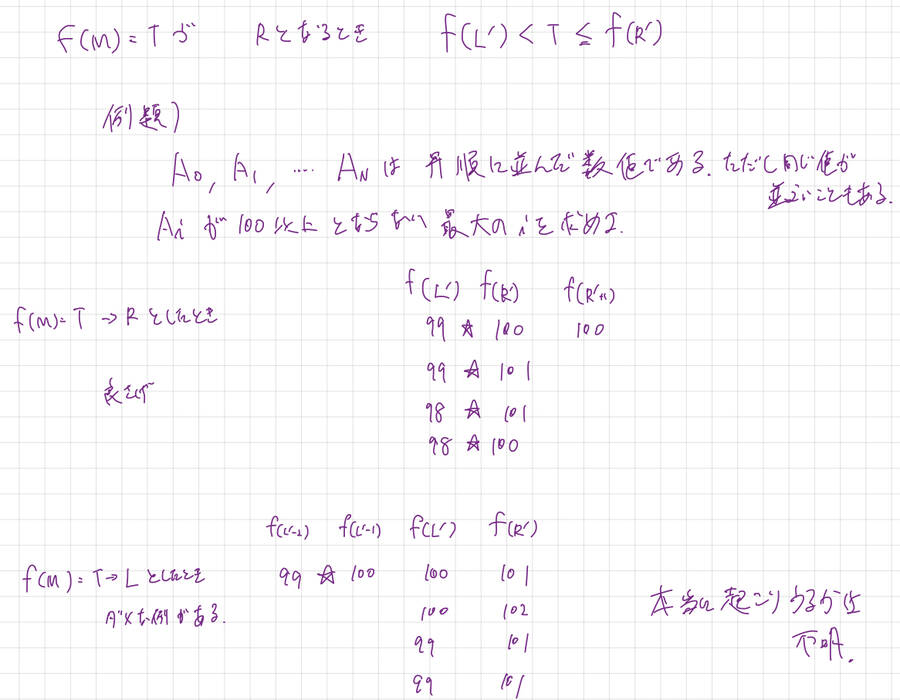 f(M)=Tが Rとなるとき f(L')<T≤f(R')
例題)
A0, A1, … AN は 昇順に並んだ数値である. ただし同じ値が
並ぶこともある.
Ai が 100以上とならない 最大の i を求めよ.
f(L') f(R') f(R'+1)
f(M)=T→Rとしたとき
99 ☆ 100 100
99 ☆ 101
良さげ
98 ☆ 101
98 ☆ 100
f(L'-2) f(L'-1) f(L') f(R')
f(M)=T→Lとしたとき
99 ☆ 100 100 101
ダメな例がある.
100 102
99 101
99 101
本当に起こりうるかは
不明.